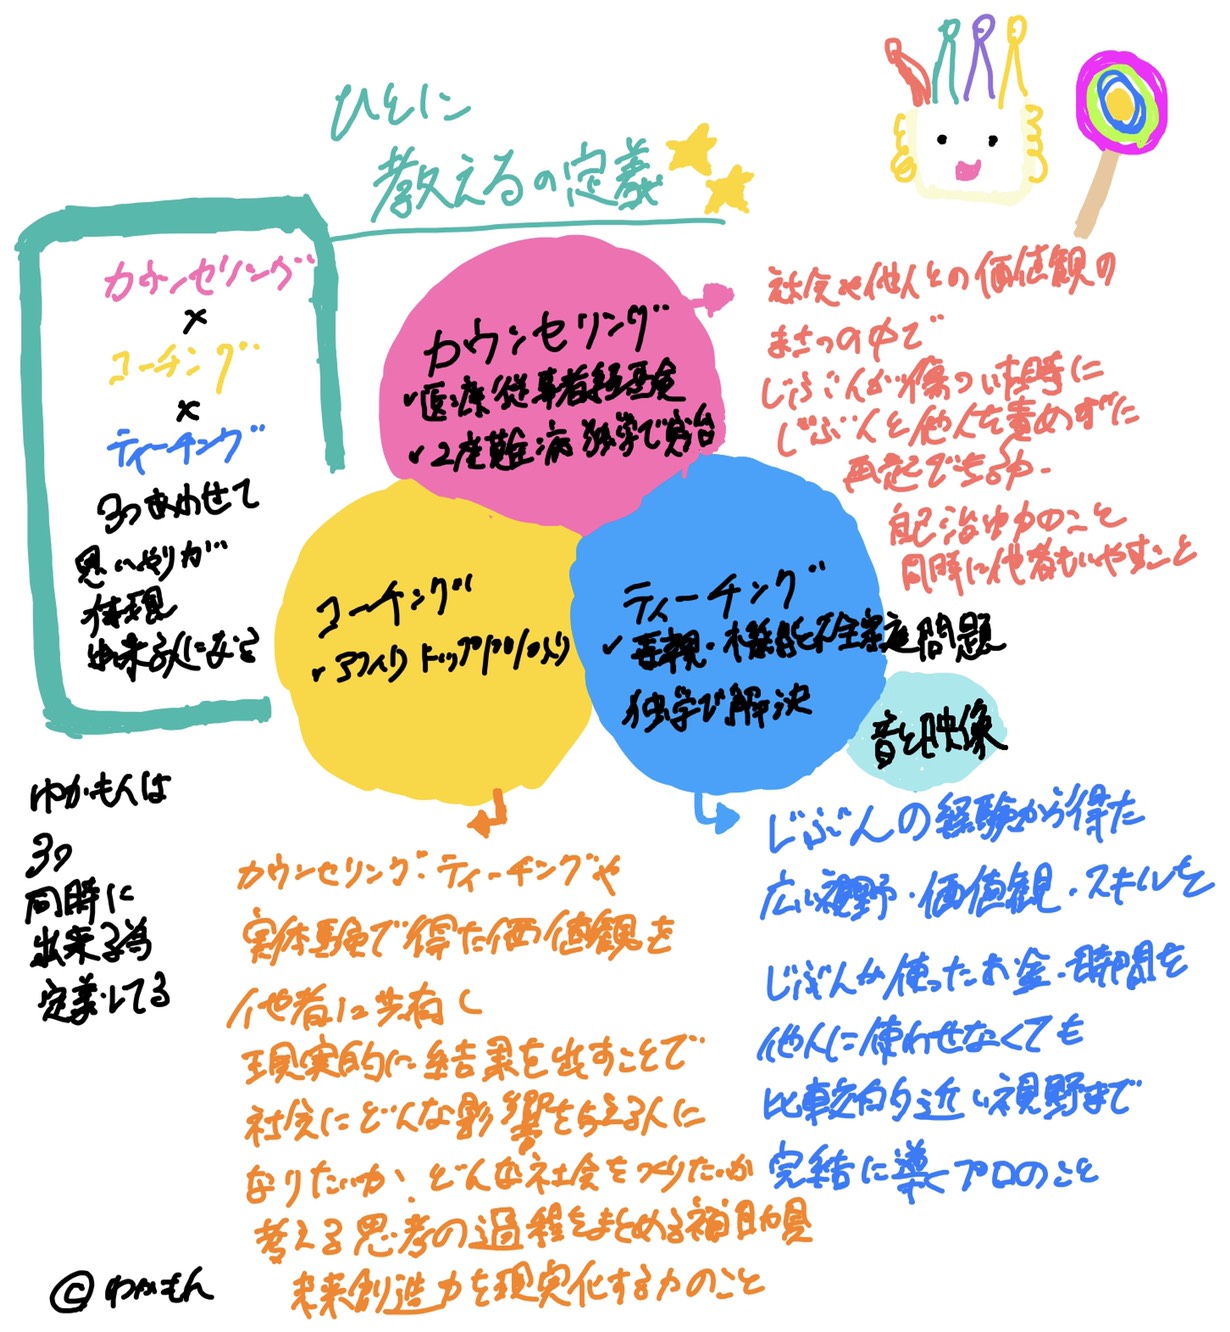 ひとに
教えるの定義
カウンセリング
×
コーチング
×
ティーチング
3つあわせて
思いやりが
体現
出来る人になる
カウンセリング
✓医療従事者経験
✓2度難病 独学で完治
コーチング
✓アフィリ トップ
ティーチング
✓毒親・機能不全家庭問題
独学で解決
音と映像
社会や他人との価値観の
まさつの中で
じぶんが傷ついた時に
じぶんと他人を責めずに
再起できる力
自己治ゆ力のこと
同時に他者もいやすこと
ゆかもんは
3つ
同時に
出来る為
定義してる
カウンセリング・ティーチングや
実体験で得た価値観を
他者に共有し
現実的に結果を出すことで
社会にどんな影響を与える人に
なりたいか、どんな社会をつくりたいか
考える思考の過程をまとめる補助具
未来創造力を現実化する力のこと
じぶんの経験から得た
広い視野・価値観・スキルを
じぶんが使ったお金・時間を
他人に使わせなくても
比較的近い視野まで
完結に導くプロのこと
©ゆかもん